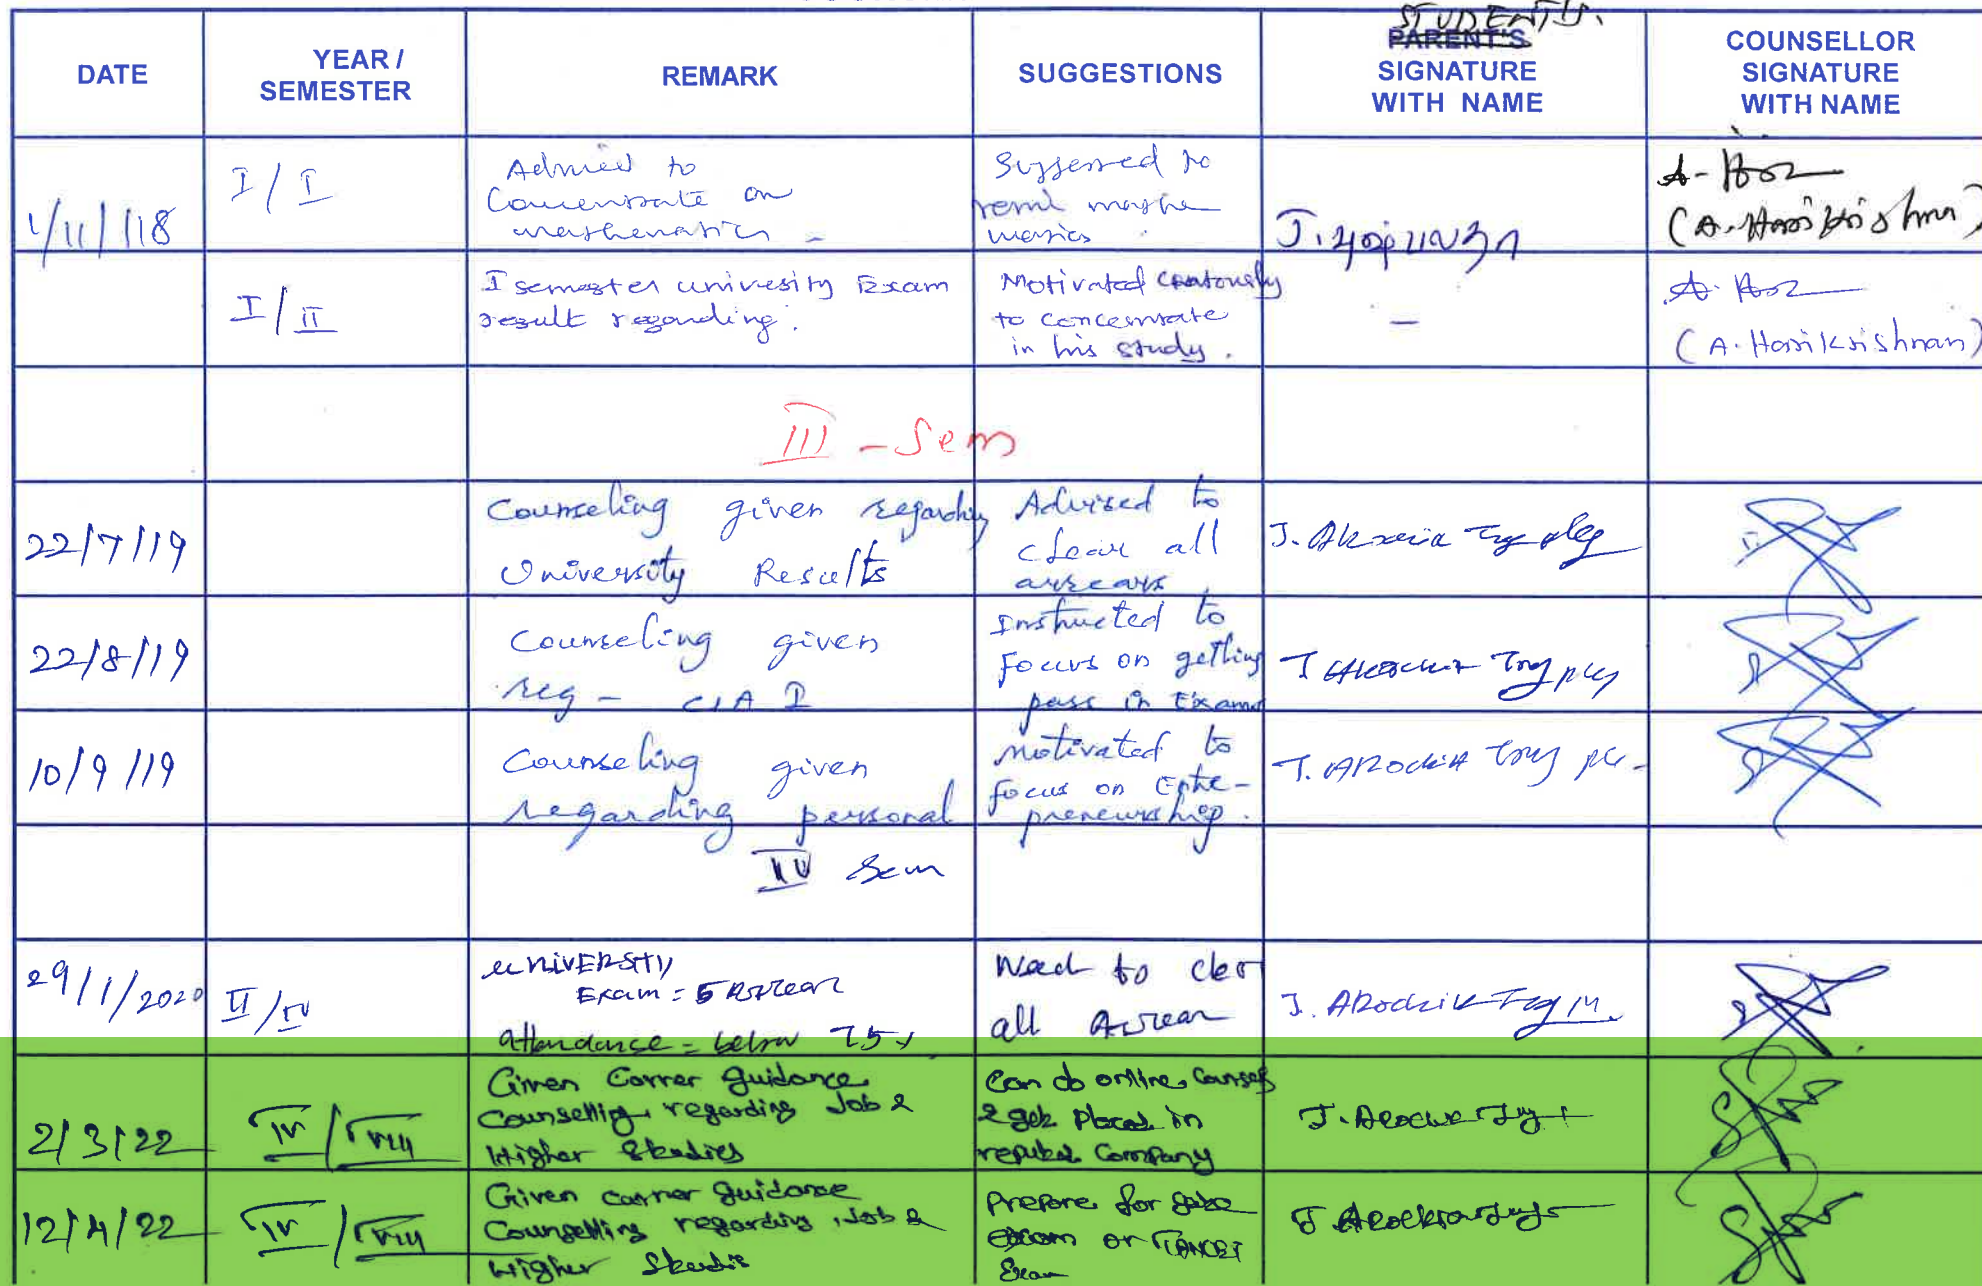 STUDENT'S.
DATE
YEAR /
SEMESTER
REMARK
SUGGESTIONS
PARENT'S
SIGNATURE
WITH NAME
COUNSELLOR
SIGNATURE
WITH NAME
1/11/118
I/I
to
on
to
J.
(A. Harikrishnan)
I/II
I semester univesity Exam
result regarding.
Motivated
to concentrate
in his study.
-
(A. Harikrishnan)
III - Sem
22/7/19
Counseling given regarding
University Results
Advised to
clear all
arrears
J.
22/8/19
Counseling given
reg - CIA I
Instructed to
Focus on getting
pass in Exams
10/9/19
Counseling given
regarding personal
motivated to
focus on Ente-
preneurship.
IV Sem
29/1/2020
II/IV
UNIVERSITY
Exam = 5 Arrear
attendance = below 75
to
all Arrear
J.
2/3/22
IV/VIII
Given Carrer guidance
Counselling regarding Job &
Higher Studies
Can do online Courses
& get Placed in
reputed Company
J.
12/4/22
IV/VIII
Given carrer guidance
Counselling regarding Job &
Higher Studies
Prepare for gate
exam or TANCET
Exam
J